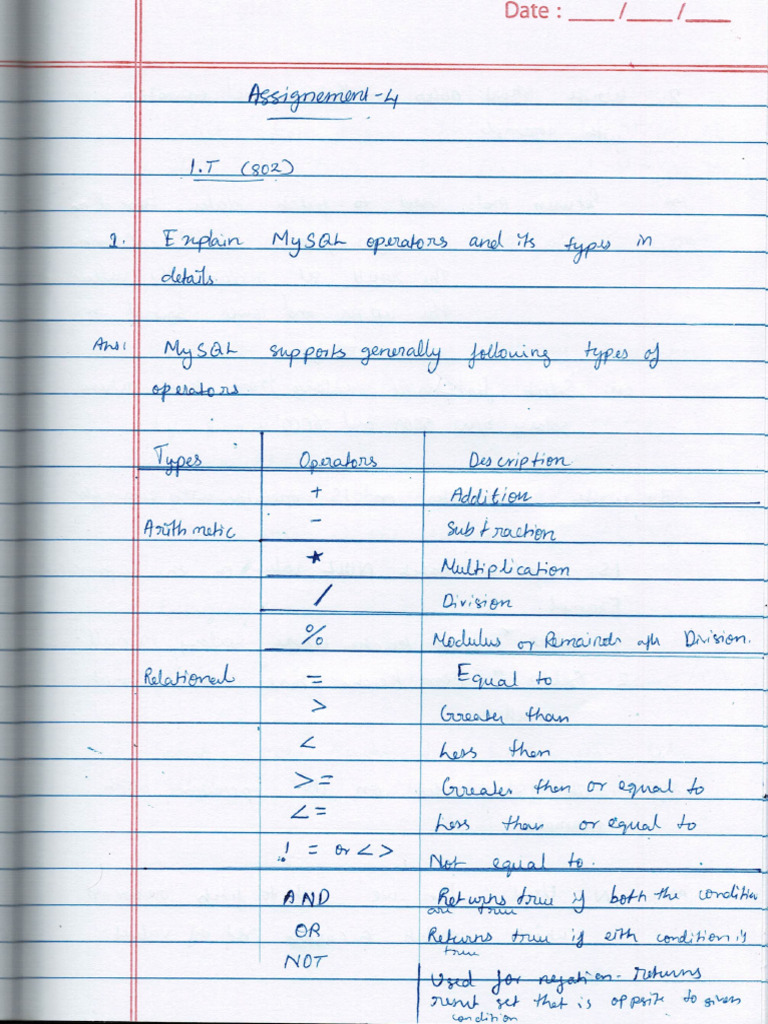 Date : ____ /____ /____
Assignement-4
I.T (802)
1. Explain MySQL operators and its types in
details.
Ans: MySQL supports generally following types of
operators
Types Operators Description
+ Addition
Arithmetic - Subtraction
* Multiplication
/ Division
% Modulus or Division.
Relational = Equal to
> Greater than
< Less than
>= Greater than or equal to
<= Less than or equal to
! = or <> Not equal to.
AND Returns true if both the condition
are true
OR Returns true if eith condition is
true
NOT Used for negation. Returns
result set that is opposite to given
condition